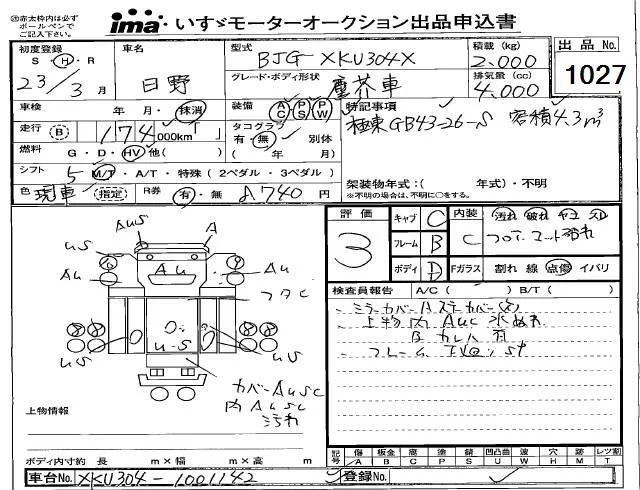 ※赤太枠内は必ず
ボールペンで
ご記入下さい。
ima いすゞモーターオークション出品申込書
初度登録
S・H・R
23/3月
車名
日野
型式
BJG-XKU304X
グレード・ボディ形状
塵芥車
積載(kg)
2,000
排気量(cc)
4,000
出品No.
1027
車検 年・月・抹消
装備 AC PS PW
特記事項
極東GB43-26-S 容積4.3m³
走行 B 174,000km
タコグラフ
有・無 別体
( 年 月)
燃料 G・D・HV他( )
シフト 5 M/T・A/T・特殊(2ペダル・3ペダル)
色 現車 指定 R券 有・無 A740円
架装物年式:( 年式)・不明
※不明の場合は、不明に○をする。
評価
3
キャブ C
フレーム B
ボディ D
内装 C
汚れ 破れ ヤニ スレ
フロアマット汚れ
Fガラス 割れ 線 点傷 イバリ
検査員報告 A/C( ) B/T( )
ミラーカバー
上物内 AUC
フレーム 下回り ST
AUS
A
US
Au
Au
Au
フタC
US
U-S
US
カバーAUSC
内AUSC
汚れ
上物情報
ボディ内寸約 長 m×幅 m×高 m
記号 傷 A 板金 B 腐 C 塗 P 錆 S 凹凸曲 U 波 W 穴 H 要交換 X 跡 M レツ割 T
車台No. XKU304-1001142
登録No.